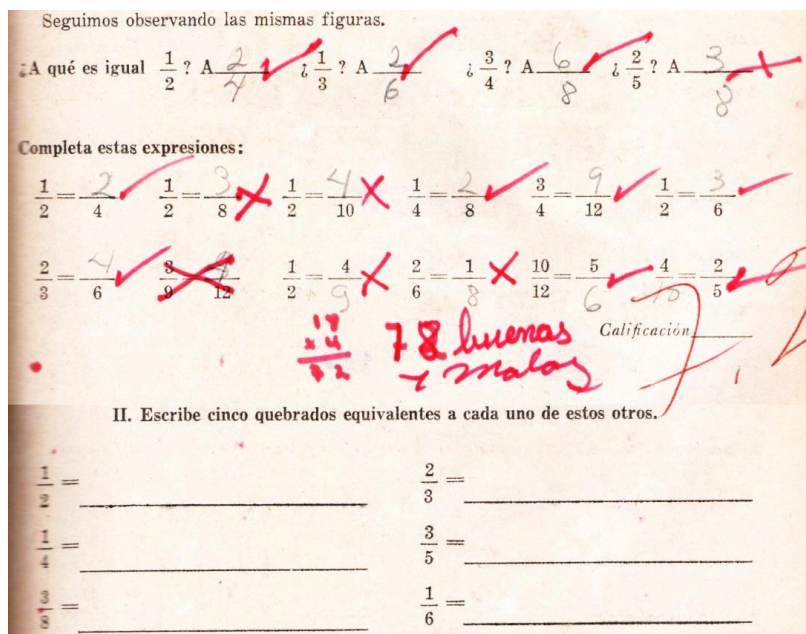 Seguimos observando las mismas figuras.
¿A qué es igual 1/2 ? A 2/4 ¿ 1/3 ? A 2/6 ¿ 3/4 ? A 6/8 ¿ 2/5 ? A 3/8
Completa estas expresiones:
1/2 = 2/4 1/2 = 3/8 1/2 = 4/10 1/4 = 2/8 3/4 = 9/12 1/2 = 3/6
2/3 = 4/6 3/9 = /12 1/2 = 4/9 2/6 = 1/8 10/12 = 5/6 4/10 = 2/5
Calificación
buenas
malas
II. Escribe cinco quebrados equivalentes a cada uno de estos otros.
1/2 = 2/3 =
1/4 = 3/5 =
3/8 = 1/6 =